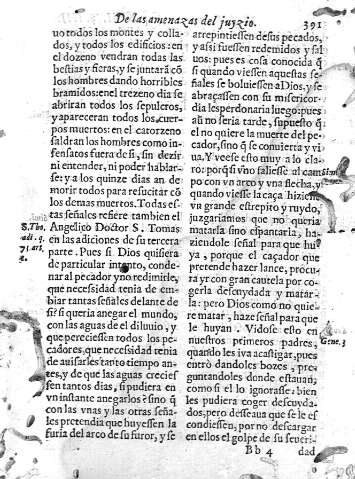 De las amenazas del juyzio. 391
uo todos los montes y colla-
dos, y todos los edificios: en
el dozeno vendran todas las
bestias y fieras, y se juntarã cõ
los hombres dando horribles
bramidos: en el trezeno dia se
abriran todos los sepulcros,
y apareceran todos los cuer-
pos muertos: en el catorzeno
saldran los hombres como in-
sensatos fuera de si, sin dezir
ni entender, ni poder hablar-
se: y a los quinze dias an de
morir todos para resucitar cõ
los demas muertos. Todas es-
tas señales refiere tambien el
Angelico Doctor S. Tomas
en las adiciones de su tercera
parte. Pues si Dios quisiera
de particular intento, conde-
nar al pecador y no redimirle,
que necessidad tenia de em-
biar tantas señales delante de
si? si queria anegar el mundo,
con las aguas de el diluuio, y
que pereciessen todos los pe-
cadores, que necessidad tenia
de auisarles tanto tiempo an-
tes, y de que las aguas crecies
sen tantos dias, si pudiera en
vn instante anegarlos? sino q̃
con las vnas y las otras seña-
les pretendia que huyessen la
furia del arco de su furor, y se
S. Tho.
adi. q.
73. art.
arrepintiessen de sus pecados,
y assi fuessen redemidos y sal
uos: pues es cosa conocida q̃
si quando viessen aquestas se-
ñales se boluiessen a Dios, y se
abraçassen con su misericor-
dia les perdonaria luego: pues
aũ no seria tarde, supuesto q̃
el no quiere la muerte del pe-
cador, sino q̃ se conuierta y vi
ua. Y veese esto muy a lo cla-
ro: porq̃ si vno saliesse al cam
po con vn arco y vna flecha, y
quando viesse la caça hiziesse
vn grande estrepito y ruydo,
juzgariamos que no queria
matarla sino espantarla, ha-
ziendole señal para que hu-
ya, porque el caçador que
pretende hazer lance, procu-
ra yr con gran cautela por co-
gerla descuydada y matar-
la: pero Dios como no quie-
re matar, haze señal para que
le huyan. Vidose esto en
nuestros primeros padres,
quando les iva a castigar, pues
entrò dandoles bozes, pre-
guntandoles donde estauan,
como si el lo ignorasse: bien
les pudiera coger descuyda-
dos, pero desseaua que se le es
condiessen, por no descargar
en ellos el golpe de su seueri-
Gene. 3
Bb 4 dad